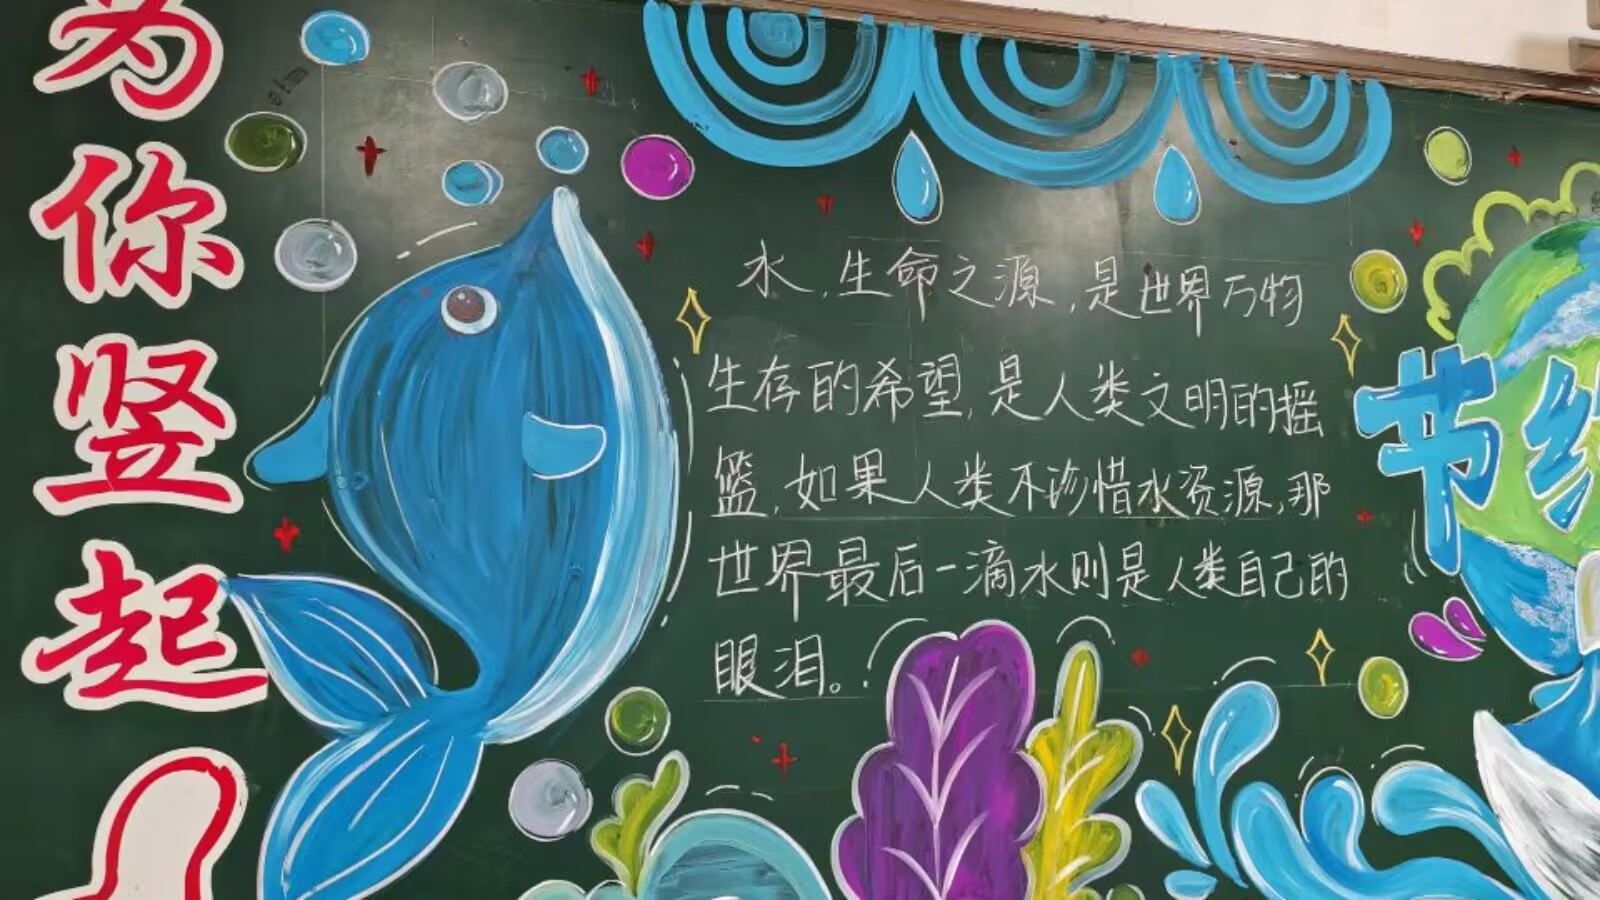 为你竖起
水,生命之源,是世界万物
生存的希望,是人类文明的摇
篮,如果人类不珍惜水资源,那
世界最后一滴水则是人类自己的
眼泪。
节